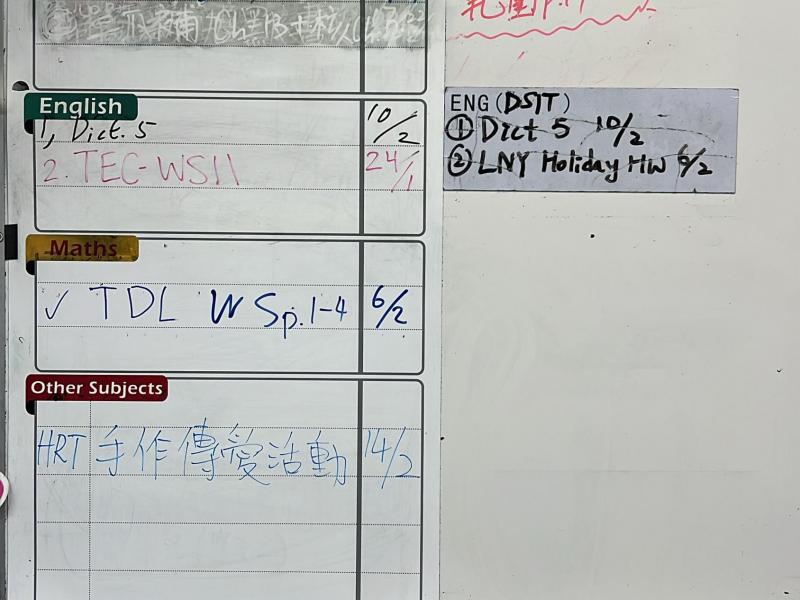 English
1, Dict. 5 10/2
2. TEC-WS11 24/1
Maths
✓ TDL WS p.1-4 6/2
Other Subjects
HRT 手作傳愛活動 14/2
ENG (DSIT)
① Dict 5 10/2
② LNY Holiday HW 6/2